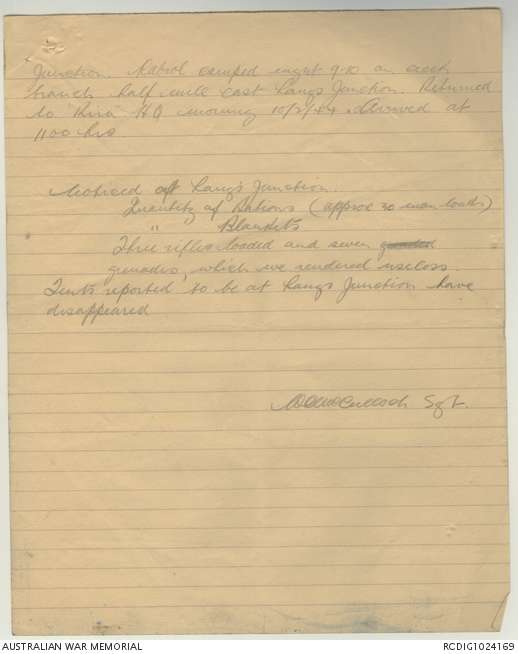 Junction. Patrol camped night 9-10 on creek
branch half mile east Langs Junction. Returned
to Kiri HQ morning 10/2/44 Arrived at
1100 hrs
Noticed at Lang's Junction.
Quantity of Rations (approx 30 man loads)
" " Blankets
Three rifles loaded and seven
grenades, which we rendered useless
Tents reported to be at Langs Junction have
disappeared
Sgt.
AUSTRALIAN WAR MEMORIAL
RCDIG1024169